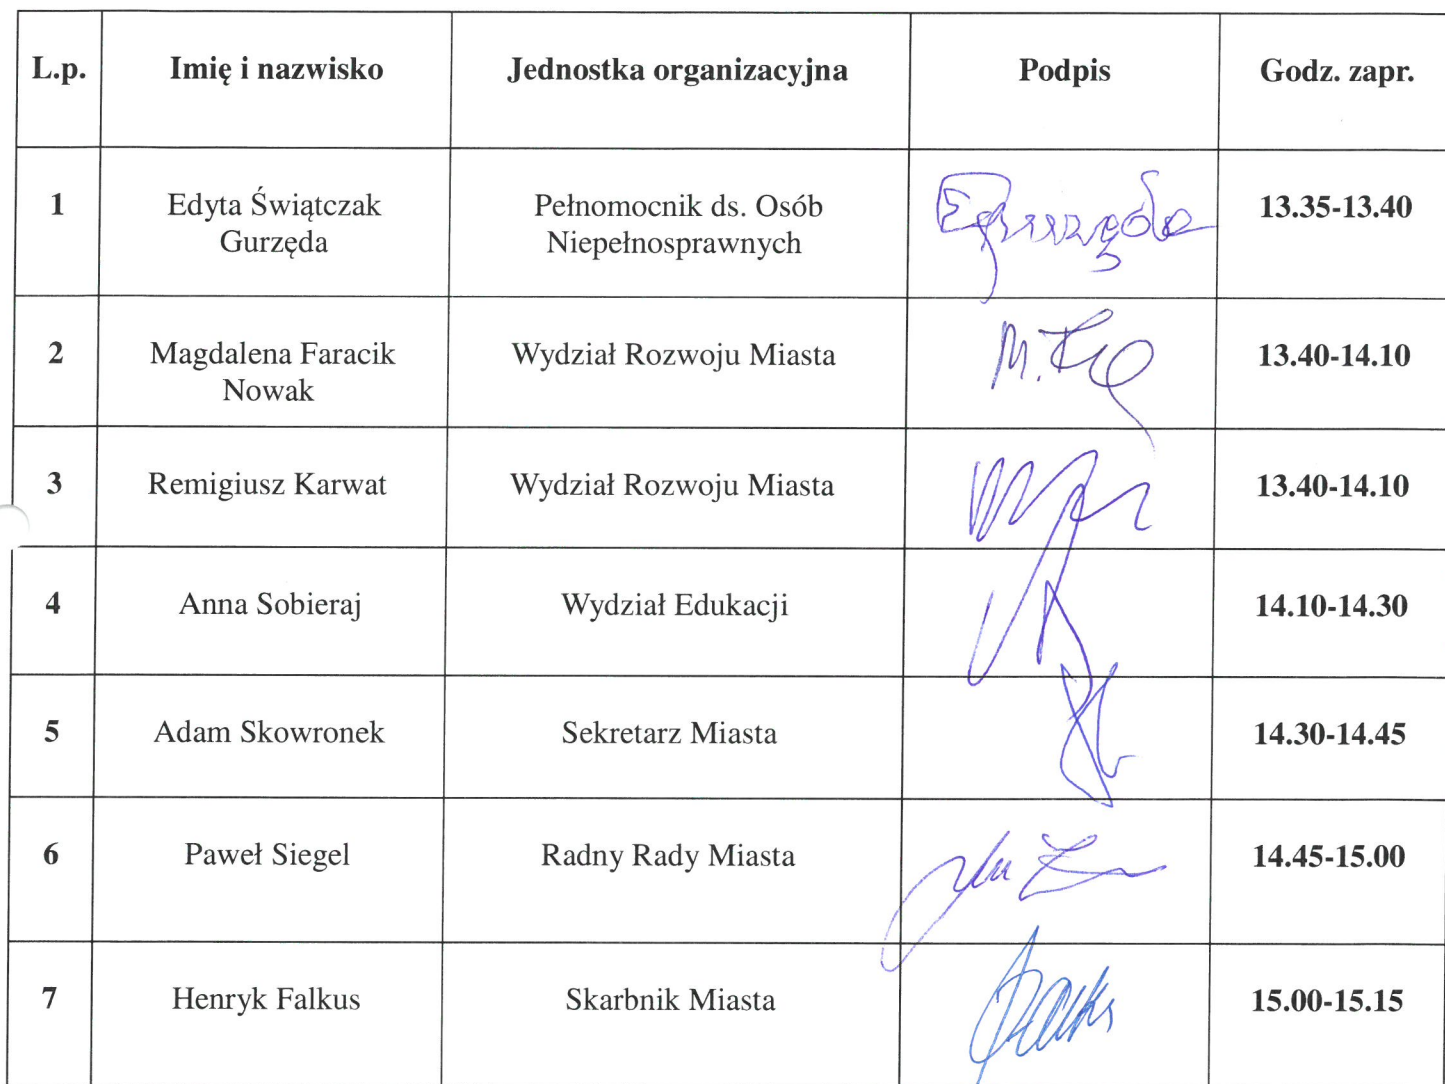 L.p. Imię i nazwisko Jednostka organizacyjna Podpis Godz. zapr.
1 Edyta Świątczak Pełnomocnik ds. Osób 13.35-13.40
Gurzęda Niepełnosprawnych
2 Magdalena Faracik Wydział Rozwoju Miasta 13.40-14.10
Nowak
3 Remigiusz Karwat Wydział Rozwoju Miasta 13.40-14.10
4 Anna Sobieraj Wydział Edukacji 14.10-14.30
5 Adam Skowronek Sekretarz Miasta 14.30-14.45
6 Paweł Siegel Radny Rady Miasta 14.45-15.00
7 Henryk Falkus Skarbnik Miasta 15.00-15.15